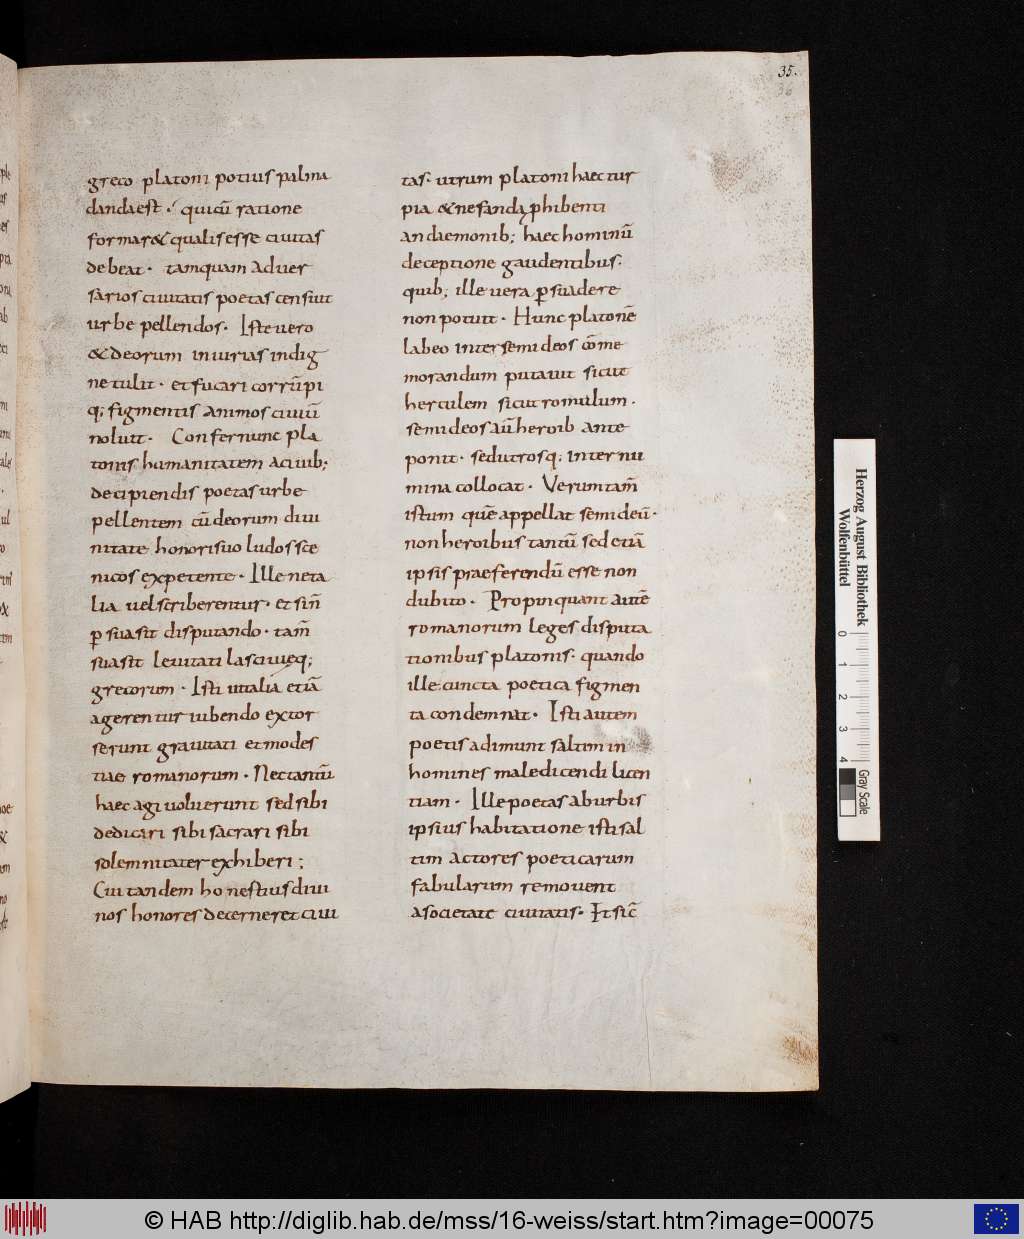 35.
36
greco platoni potius palma
danda est · qui cū ratione
formar& qualis esse ciuitas
debeat · tamquam aduer
sarios ciuitatis poetas censuit
urbe pellendos · Iste uero
& deorum iniurias indig
ne tulit · et fucari corrūpi
q; figmentis animos ciuiū
noluit · Confer nunc pla
tonis humanitatem a ciuib;
decipiendis poetas urbe
pellentem cū deorum diui
nitate honori suo ludos sce
nicos expetente · Ille ne ta
lia uel scriberentur · et si n̄
p̱suasit disputando · tam̄
suasit leuitati lasciuięq;
grecorum · Isti ut talia etiā
agerentur iubendo extor
serunt grauitati et modes
tiae romanorum · Nec tantū
haec agi uoluerunt sed sibi
dedicari sibi sacrari sibi
solemnitater exhiberi ;
Cui tandem honestius diui
nos honores decerneret ciui
tas · utrum platoni haec tur
pia & nefanda ꝓhibenti
an daemonib; hac hominū
deceptione gaudentibus ·
quib; ille uera p̱suadere
non potuit · Hunc platonē
labeo inter semideos cōme
morandum putauit sicut
herculem sicut romulum ·
semideos aū heroib ante
ponit · sed utrosq; inter nu
mina collocat · Verumtam̄
istum quē appellat semideū ·
non heroibus tantū sed etiā
ipsis praeferendū esse non
dubito · Propinquant autē
romanorum leges disputa
tionibus platonis · quando
ille cuncta poetica figmen
ta condemnat · Isti autem
poetis adimunt saltim in
homines maledicendi licen
tiam · Ille poetas ab urbis
ipsius habitatione isti sal
tim actores poeticarum
fabularum remouent
a societate ciuitatis · Et sic̄
Herzog August Bibliothek
Wolfenbüttel
0 1 2 3 4
Gray Scale
© HAB http://diglib.hab.de/mss/16-weiss/start.htm?image=00075